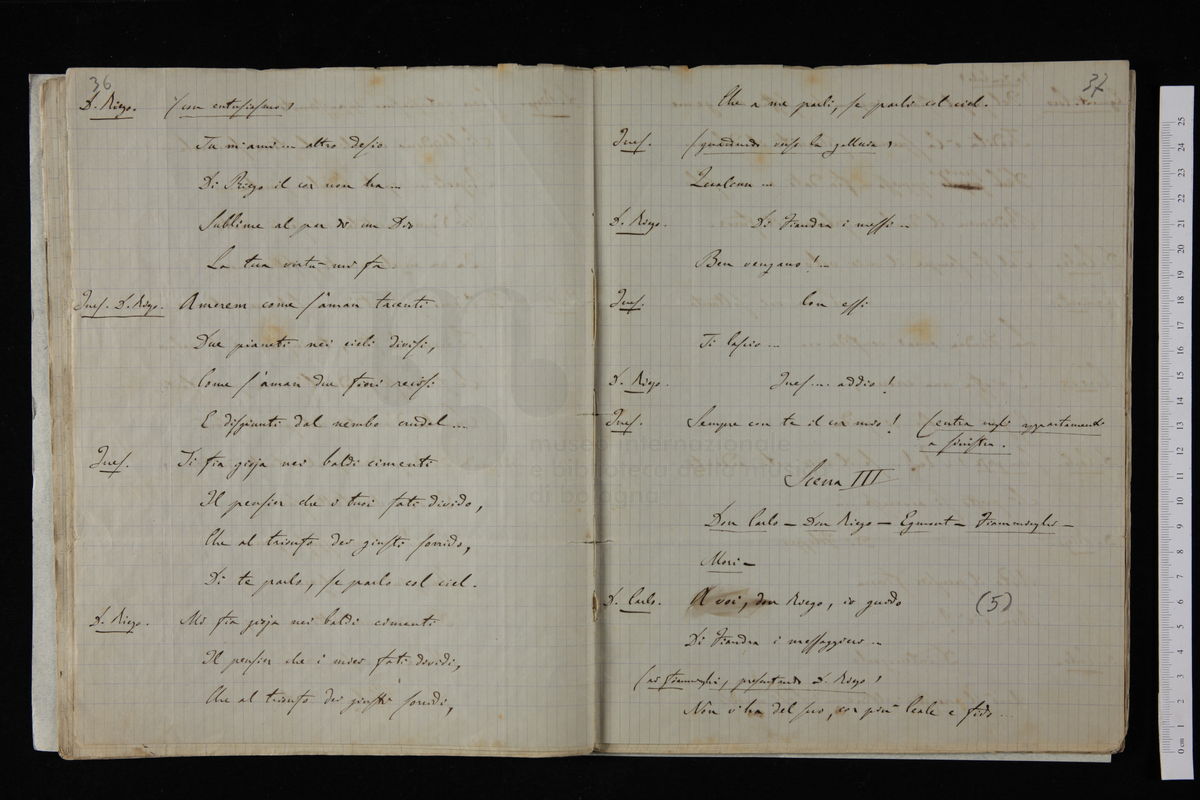 36
D. Riego. (con entusiasmo)
Tu m'ami... altro desio
Di Riego il cor non ha...
Sublime al par di un Dio
La tua virtù mi fa
Ines. D. Riego. Amerem come s'aman tacenti
Due pianeti nei cieli divisi,
Come s'aman due fiori recisi
E disgiunti dal nembo crudel...
Ines. Ti fia gioja nei baldi cimenti
Il pensier che i tuoi fati divido,
Che al trionfo dei giusti sorrido,
Di te parlo, se parlo col ciel.
D. Riego. Mi fia gioja nei baldi cimenti
Il pensier che i miei fati dividi,
Che al trionfo dei giusti sorridi,
37
Che a me parli, se parli col ciel.
Ines. (guardando verso la galleria)
Qualcun...
D. Riego. Di Fiandra i messi...
Ben vengano!...
Ines. Con essi
Ti lascio...
D. Riego. Ines... addio!
Ines. Sempre con te il cor mio! (entra negli appartamenti
a sinistra.
Scena III
Don Carlo – Don Riego – Egmont – Fiamminghi –
Mori –
D. Carlo. A voi, don Riego, io guido (5)
Di Fiandra i messaggieri...
(ai fiamminghi, presentando D. Riego)
Non v'ha del suo, cor più leale e fido...
museo internazionale
biblioteca
di bologna
25
24
23
22
21
20
19
18
17
16
15
14
13
12
11
10
9
8
7
6
5
4
3
2
1
0 cm